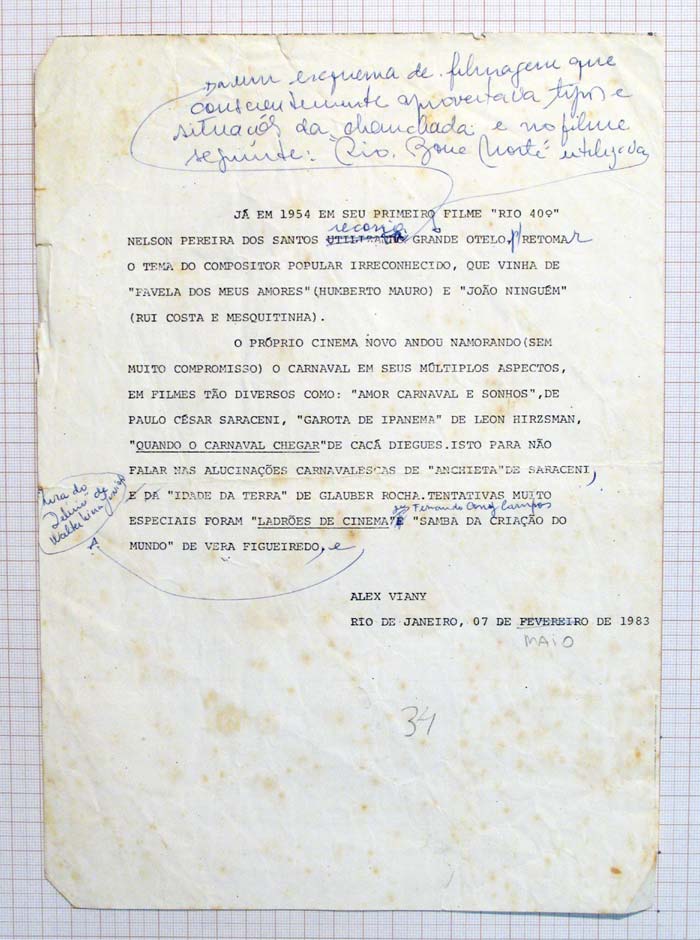 num esquema de filmagem que
conscientemente aproveitava tipos e
situações da chanchada e no filme
seguinte: "Rio, Zone Norte" utilizada
JÁ EM 1954 EM SEU PRIMEIRO FILME "RIO 40º"
recorria a
NELSON PEREIRA DOS SANTOS UTILIZANDO GRANDE OTELO, p/ RETOMAR
O TEMA DO COMPOSITOR POPULAR IRRECONHECIDO, QUE VINHA DE
"FAVELA DOS MEUS AMORES"(HUMBERTO MAURO) E "JOÃO NINGUÉM"
(RUI COSTA E MESQUITINHA).
O PRÓPRIO CINEMA NOVO ANDOU NAMORANDO(SEM
MUITO COMPROMISSO) O CARNAVAL EM SEUS MÚLTIPLOS ASPECTOS,
EM FILMES TÃO DIVERSOS COMO: "AMOR CARNAVAL E SONHOS",DE
PAULO CÉSAR SARACENI, "GAROTA DE IPANEMA" DE LEON HIRZSMAN,
"QUANDO O CARNAVAL CHEGAR"DE CACÁ DIEGUES.ISTO PARA NÃO
FALAR NAS ALUCINAÇÕES CARNAVALESCAS DE "ANCHIETA"DE SARACENI,
E DA "IDADE DA TERRA" DE GLAUBER ROCHA.TENTATIVAS MUITO
de Fernando Campos
ESPECIAIS FORAM "LADRÕES DE CINEMA" E "SAMBA DA CRIAÇÃO DO
MUNDO" DE VERA FIGUEIREDO, e
Lira do
Delírio de
Walter Lima Júnior
ALEX VIANY
RIO DE JANEIRO, 07 DE FEVEREIRO DE 1983
MAIO
34